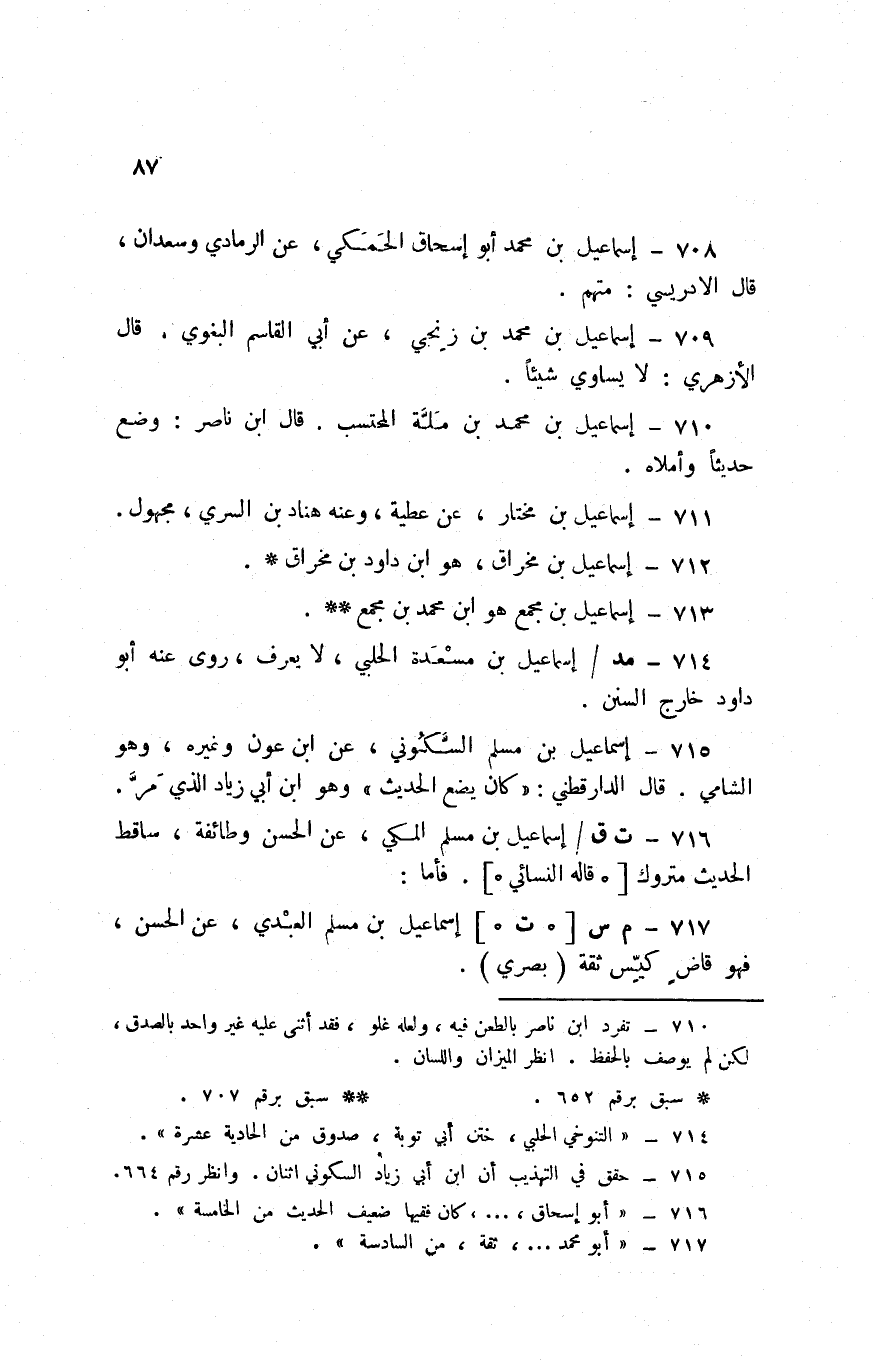 ٨٧
٧٠٨ – إسماعيل بن محمد أبو إسحاق الحَمَكي ، عن الرمادي وسعدان ،
قال الادريسي : متهم .
٧٠٩ – إسماعيل بن محمد بن زنجي ، عن أبي القاسم البغوي . قال
الأزهري : لا يساوي شيئاً .
٧١٠ – إسماعيل بن محمد بن مَلَّة المحتسب . قال ابن ناصر : وضع
حديثاً وأملاه .
٧١١ – إسماعيل بن مختار ، عن عطية ، وعنه هناد بن السري ، مجهول .
٧١٢ – إسماعيل بن مخراق ، هو ابن داود بن مخراق * .
٧١٣ – إسماعيل بن مجمع هو ابن محمد بن مجمع ** .
٧١٤ – مد / إسماعيل بن مسْعَدة الحلبي ، لا يعرف ، روى عنه أبو
داود خارج السنن .
٧١٥ – إسماعيل بن مسلم السَّكُوني ، عن ابن عون وغيره ، وهو
الشامي . قال الدارقطني : « كان يضع الحديث » وهو ابن أبي زياد الذي مَرَّ .
٧١٦ – ت ق / إسماعيل بن مسلم المكي ، عن الحسن وطائفة ، ساقط
الحديث متروك [ ه قاله النسائي ه ] . فأما :
٧١٧ – م س [ ه ت ه ] إسماعيل بن مسلم العبْدي ، عن الحسن ،
فهو قاضٍ كيّس ثقة ( بصري ) .
٧١٠ – تفرد ابن ناصر بالطعن فيه ، ولعله غلو ، فقد أثنى عليه غير واحد بالصدق ،
لكن لم يوصف بالحفظ . انظر الميزان واللسان .
* سبق برقم ٦٥٢ . ** سبق برقم ٧٠٧ .
٧١٤ – « التنوخي الحلبي ، ختن أبي توبة ، صدوق من الحادية عشرة » .
٧١٥ – حقق في التهذيب أن ابن أبي زياد السكوني اثنان . وانظر رقم ٦٦٤.
٧١٦ – « أبو إسحاق ، ... ، كان فقيها ضعيف الحديث من الخامسة » .
٧١٧ – « أبو محمد ... ، ثقة ، من السادسة » .